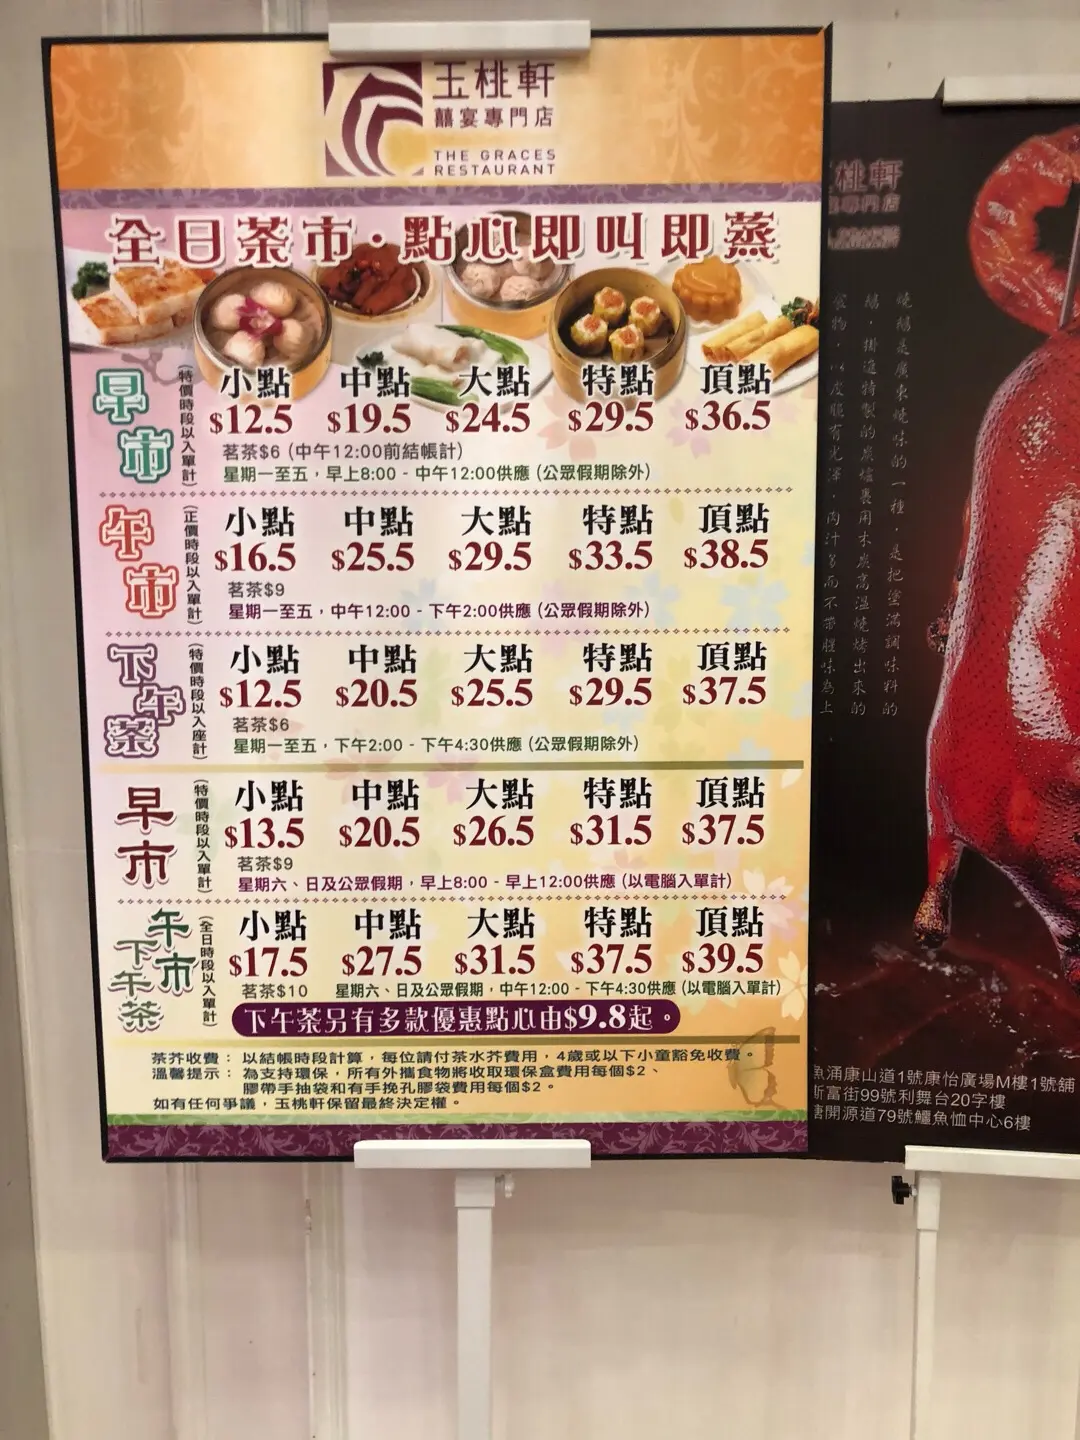 玉桃軒
囍宴專門店
THE GRACES
RESTAURANT
全日茶市·點心即叫即蒸
早市
(特價時段以入單計)
小點 中點 大點 特點 頂點
$12.5 $19.5 $24.5 $29.5 $36.5
茗茶$6 (中午12:00前結帳計)
星期一至五，早上8:00 - 中午12:00供應 (公眾假期除外)
午市
(正價時段以入單計)
小點 中點 大點 特點 頂點
$16.5 $25.5 $29.5 $33.5 $38.5
茗茶$9
星期一至五，中午12:00 - 下午2:00供應 (公眾假期除外)
下午茶
(特價時段以入座計)
小點 中點 大點 特點 頂點
$12.5 $20.5 $25.5 $29.5 $37.5
茗茶$6
星期一至五，下午2:00 - 下午4:30供應 (公眾假期除外)
早市
(特價時段以入單計)
小點 中點 大點 特點 頂點
$13.5 $20.5 $26.5 $31.5 $37.5
茗茶$9
星期六、日及公眾假期，早上8:00 - 早上12:00供應 (以電腦入單計)
午市
下午茶
(全日時段以入單計)
小點 中點 大點 特點 頂點
$17.5 $27.5 $31.5 $37.5 $39.5
茗茶$10 星期六、日及公眾假期，中午12:00 - 下午4:30供應 (以電腦入單計)
下午茶另有多款優惠點心由$9.8起。
茶芥收費： 以結帳時段計算，每位請付茶水芥費用，4歲或以下小童豁免收費。
溫馨提示： 為支持環保，所有外攜食物將收取環保盒費用每個$2、
膠帶手抽袋和有手挽孔膠袋費用每個$2。
如有任何爭議，玉桃軒保留最終決定權。
桃軒
專門店
燒鵝是廣東燒味的一種，是把塗滿調味料的
鵝，掛進特製的炭爐裏用木炭高溫燒烤出來的
食物，以皮脆有光澤，肉汁多而不帶腥味為上
魚涌康山道1號康怡廣場M樓1號舖
新富街99號利舞台20字樓
塘開源道79號鱷魚恤中心6樓